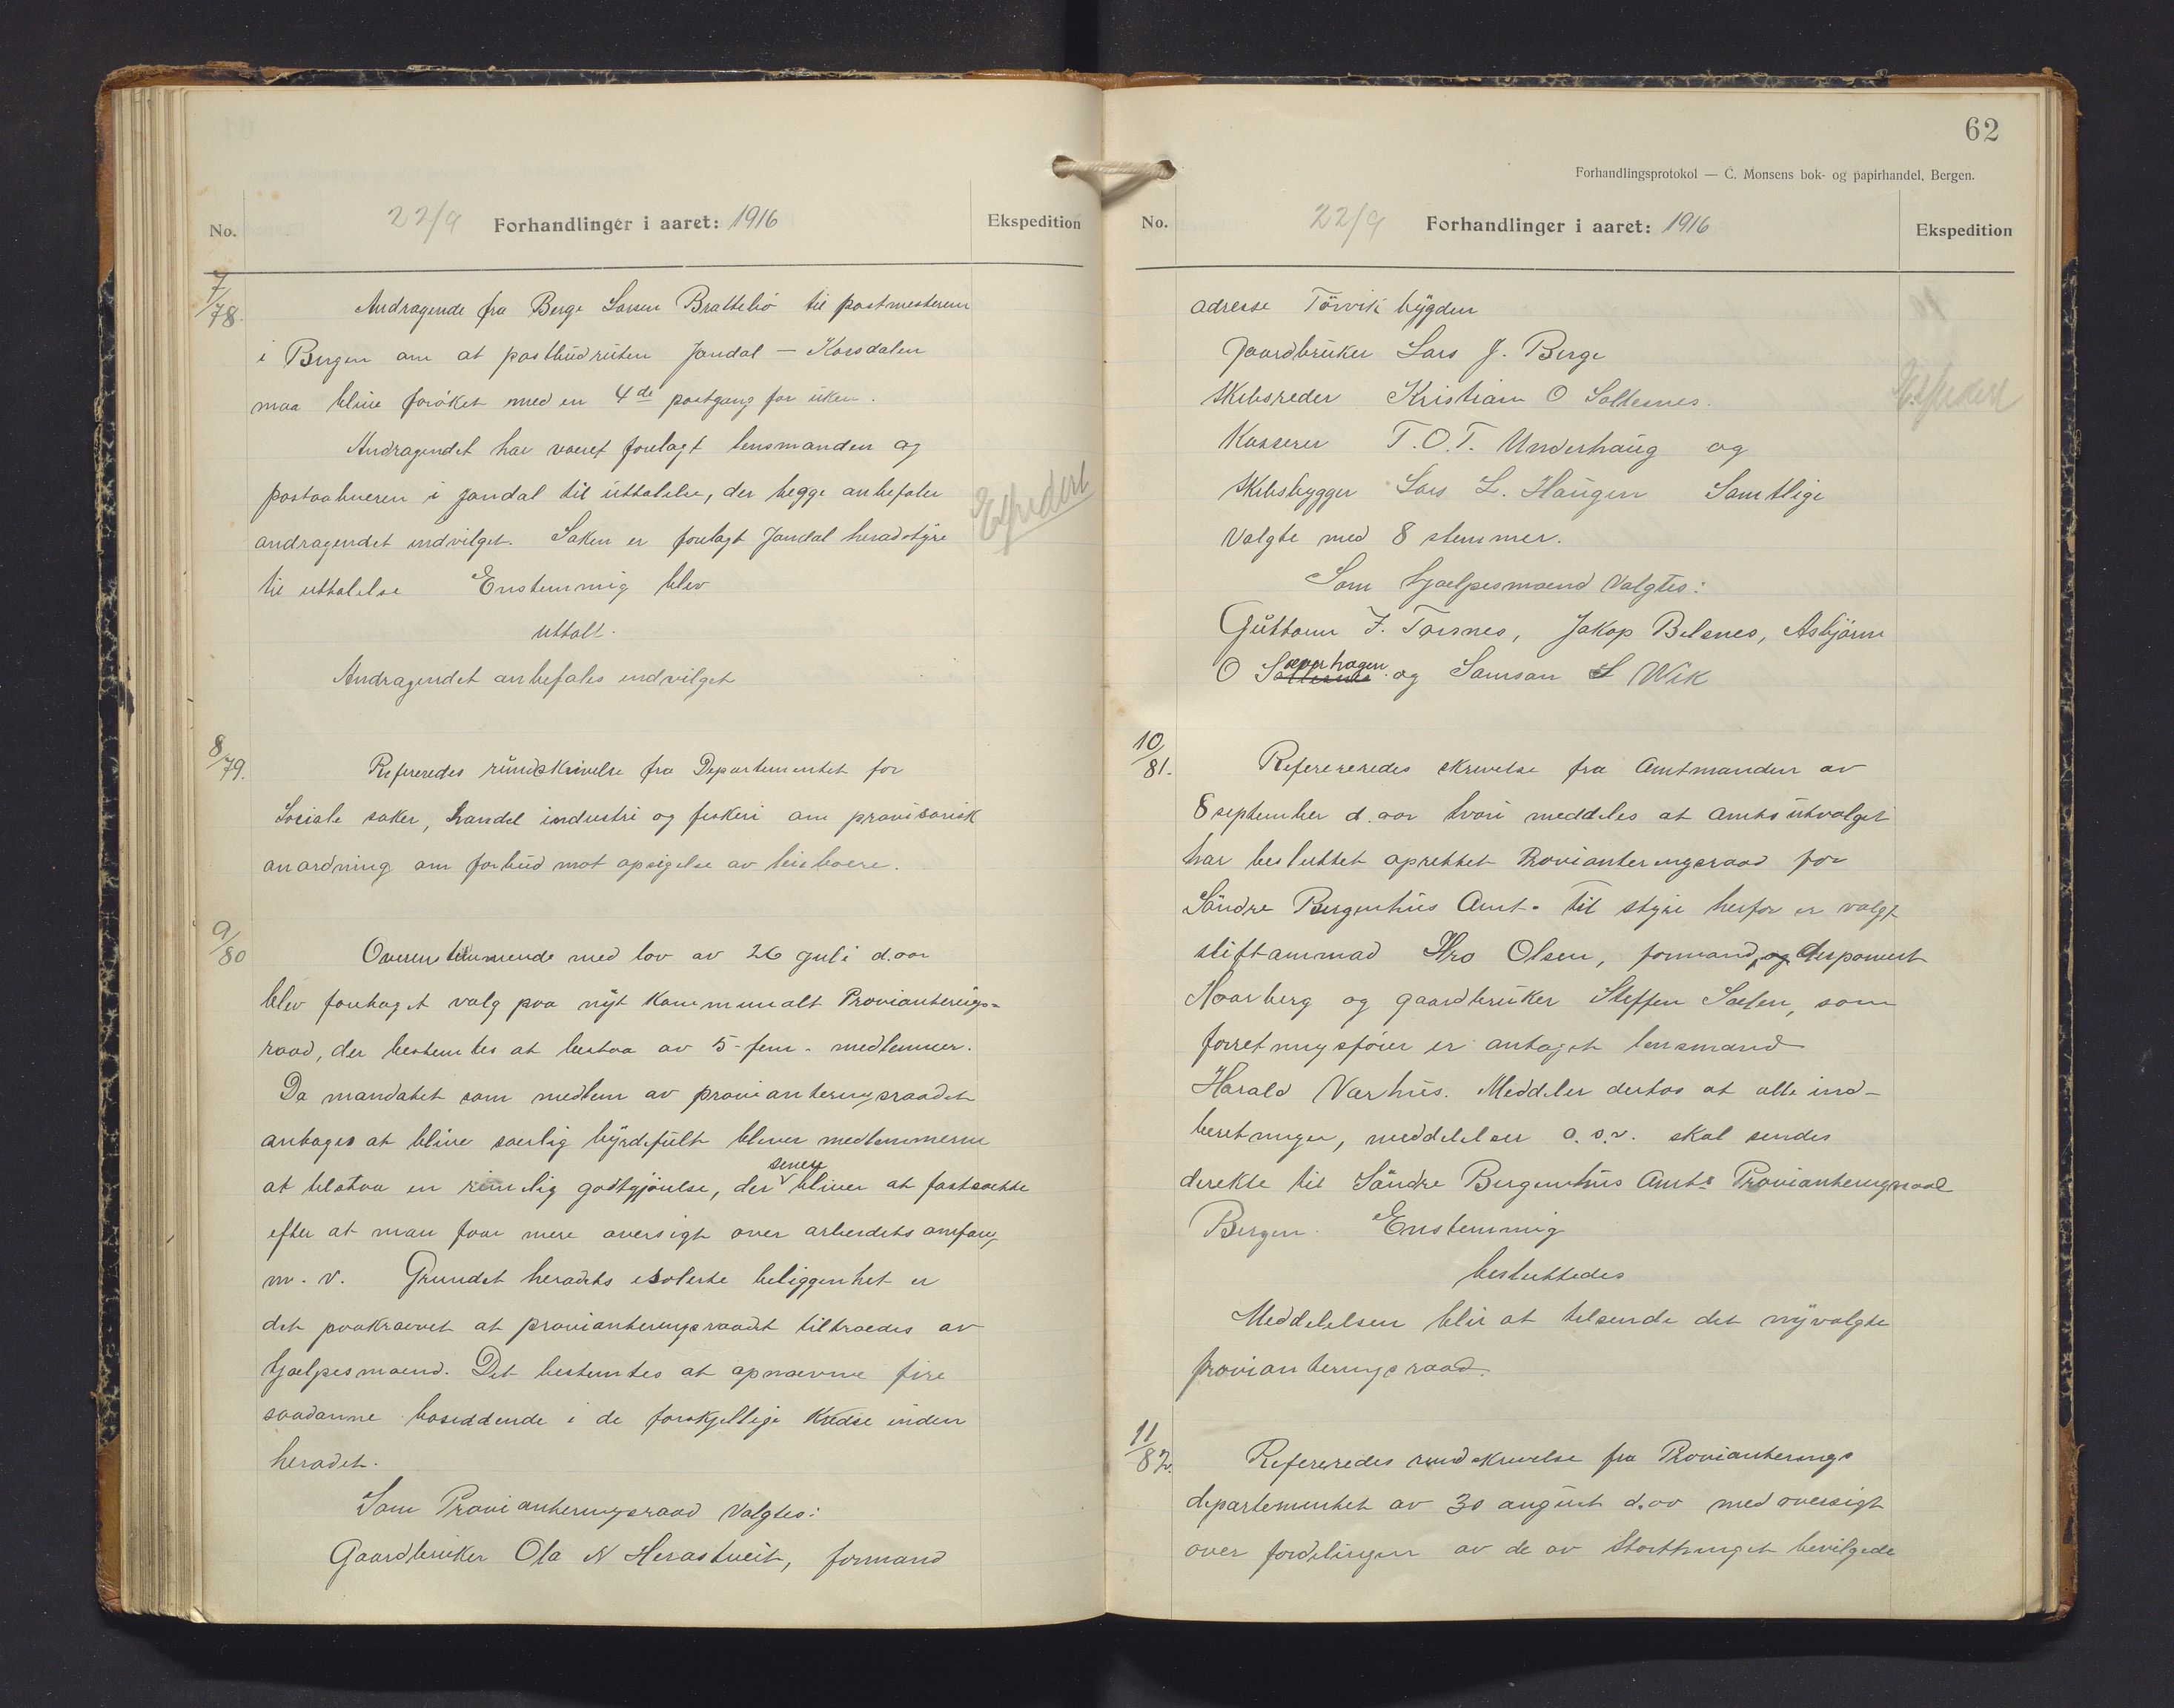 No.
22/9 Forhandlinger i aaret: 1916
Ekspedition
7/78.
Andragende fra Berge Larsen Brattebø til postmesteren
i Bergen om at postbudruten Jondal — Korsdalen
maa blive forøket med en 4de postgang for uken.
Andragendet har været forelagt lensmanden og
postaabneren i Jondal til uttalelse, der begge anbefaler
andragendet indvilget. Saken er forelagt Jondal heradstyre
til uttalelse Enstemmig blev
uttalt.
Andragendet anbefales indvilget
Ekspedert
8/79.
Refereredes rundskrivelse fra Departementet for
Sociale saker, handel industri og fiskeri om provisorisk
anordning om forbud mot opsigelse av leieboere.
9/80
Overenstemmende med lov av 26 juli d.aar
blev foretaget valg paa nyt kommunalt Provianterings=
raad, der bestemtes at bestaa av 5-fem- medlemmer.
Da mandatet som medlem av provianteringsraadet
antages at blive særlig byrdefult bliver medlemmerne
at tilstaa en rimelig godtgjørelse, der senere bliver at fastsætte
efter at man faar mere oversigt over arbeidets omfang
m. v. Grundet heradets isolerte beliggenhet er
det paakrævet at provianteringsraadet tiltrædes av
hjælpesmænd. Det bestemtes at opnævne fire
saadanne bosiddende i de forskjellige Kredse inden
heradet.
Som Provianteringsraad Valgtes:
Gaardbruker Ola N Herastveit, formand
62
Forhandlingsprotokol — C. Monsens bok- og papirhandel, Bergen.
No.
22/9 Forhandlinger i aaret: 1916
Ekspedition
adresse Tørvik bygden
Gaardbruker Lars J. Berge
Skibsreder Kristian O Soltennes.
Kasserer T.O.T. Underhaug og
Skibsbygger Lars L. Haugen Samtlige
Valgte med 8 stemmer.
Ekspedert
Som hjælpesmænd Valgtes:
Guttorm J. Torsnes, Jakop Belsnes, Asbjørn
O Sæverhagen og Samson S Wik
10/81.
Referereredes skrivelse fra Amtmanden av
8 september d. aar hvori meddeles at amtsutvalget
har besluttet oprettet Provianteringsraad for
Søndre Bergenhus Amt. Til styre herfor er valgt
stiftammad Hro Olsen, formand, og disponent
Haarberg og gaardbruker Steffen Sælen, som
forretningsfører er antaget lensmand
Harald Varhus. Meddeler dertos at alle ind-
beretninger, meddelelser o.s.v. skal sendes
direkte til Søndre Bergenhus Amts Provianteringsraad
Bergen. Enstemmig
besluttedes
Meddelelsen blir at tilsende det nyvalgte
provianteringsraad.
11/82.
Refereredes rundskrivelse fra Provianterings
departementet av 30 august d.aa med oversigt
over fordelingen av de av Stortinget bevilgede